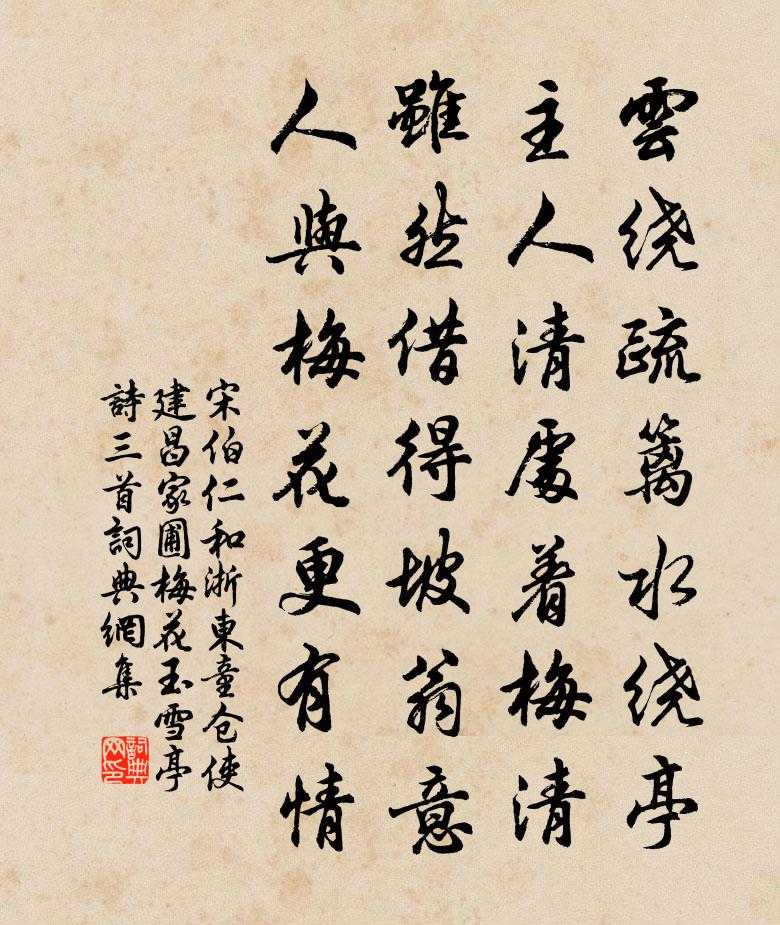 雲绕疏篱水绕亭
主人清處着梅清
雖然借得坡翁意
人與梅花更有情
宋伯仁和浙東童仓使
建昌家圃梅花玉雪亭
詩三首詞典網集
詞典
网印